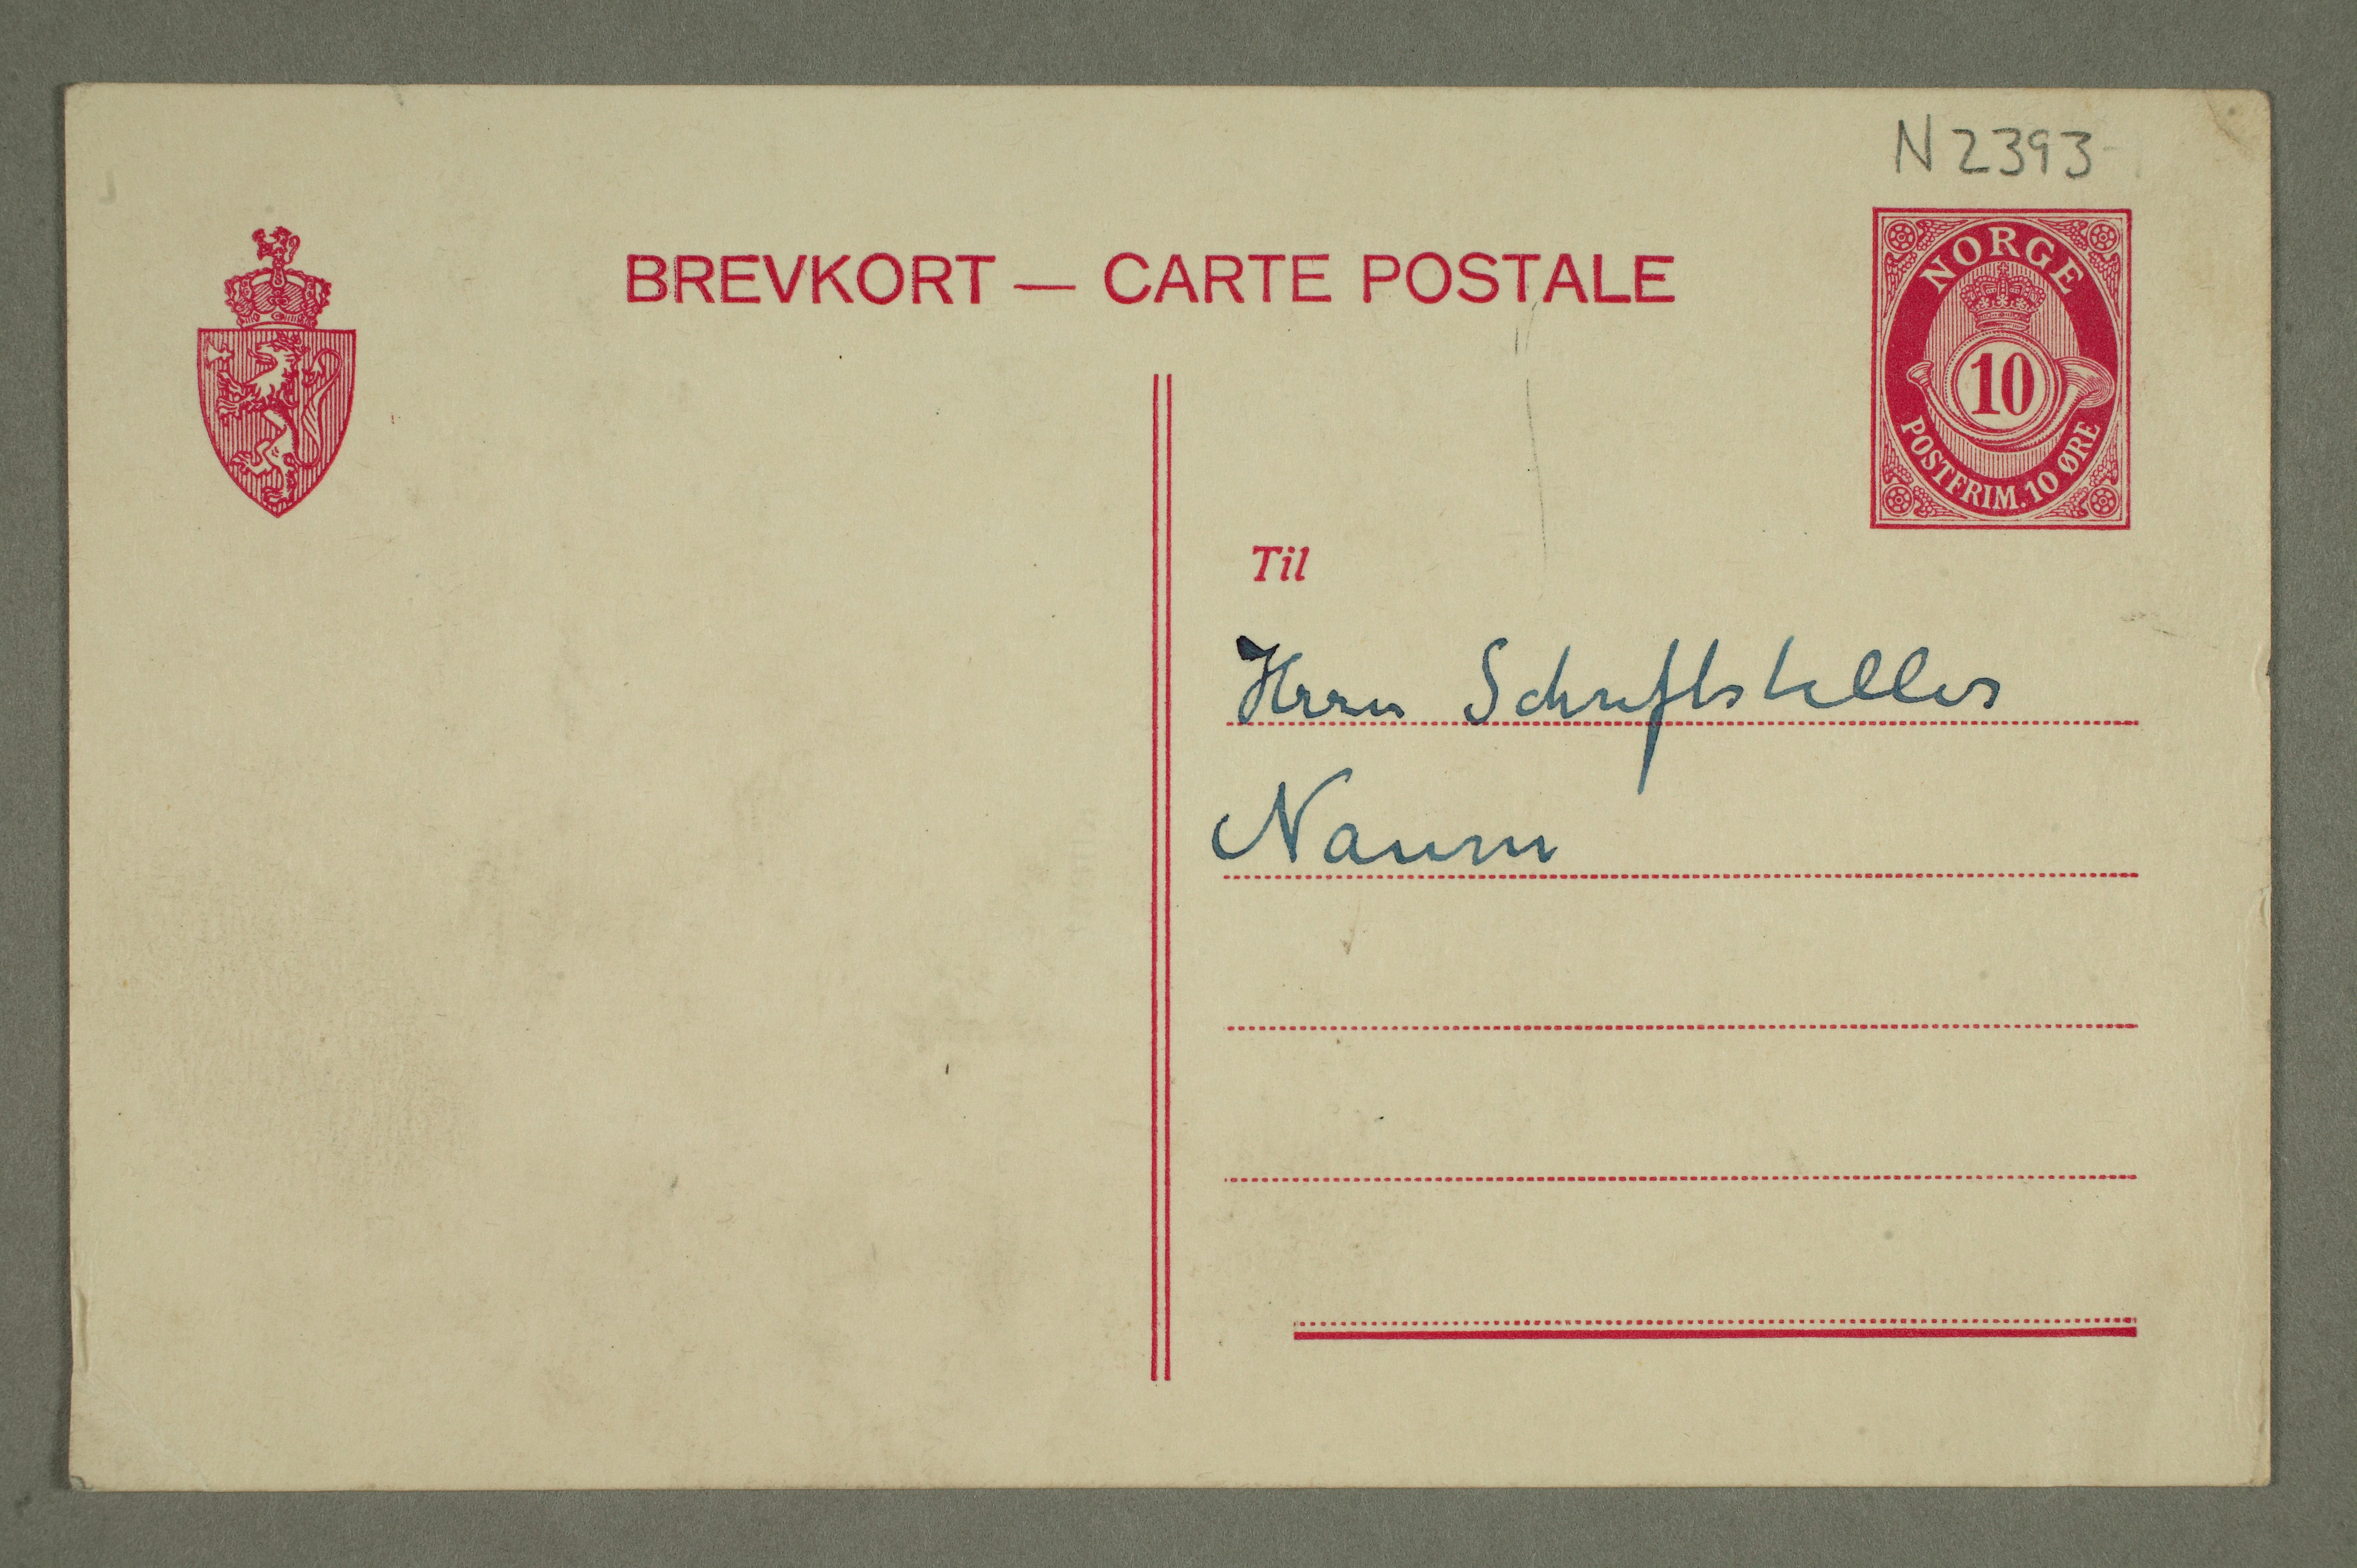 N 2393
BREVKORT — CARTE POSTALE
NORGE
10
POSTFRIM. 10 ØRE
Til
Herrn Schriftsteller
Naum